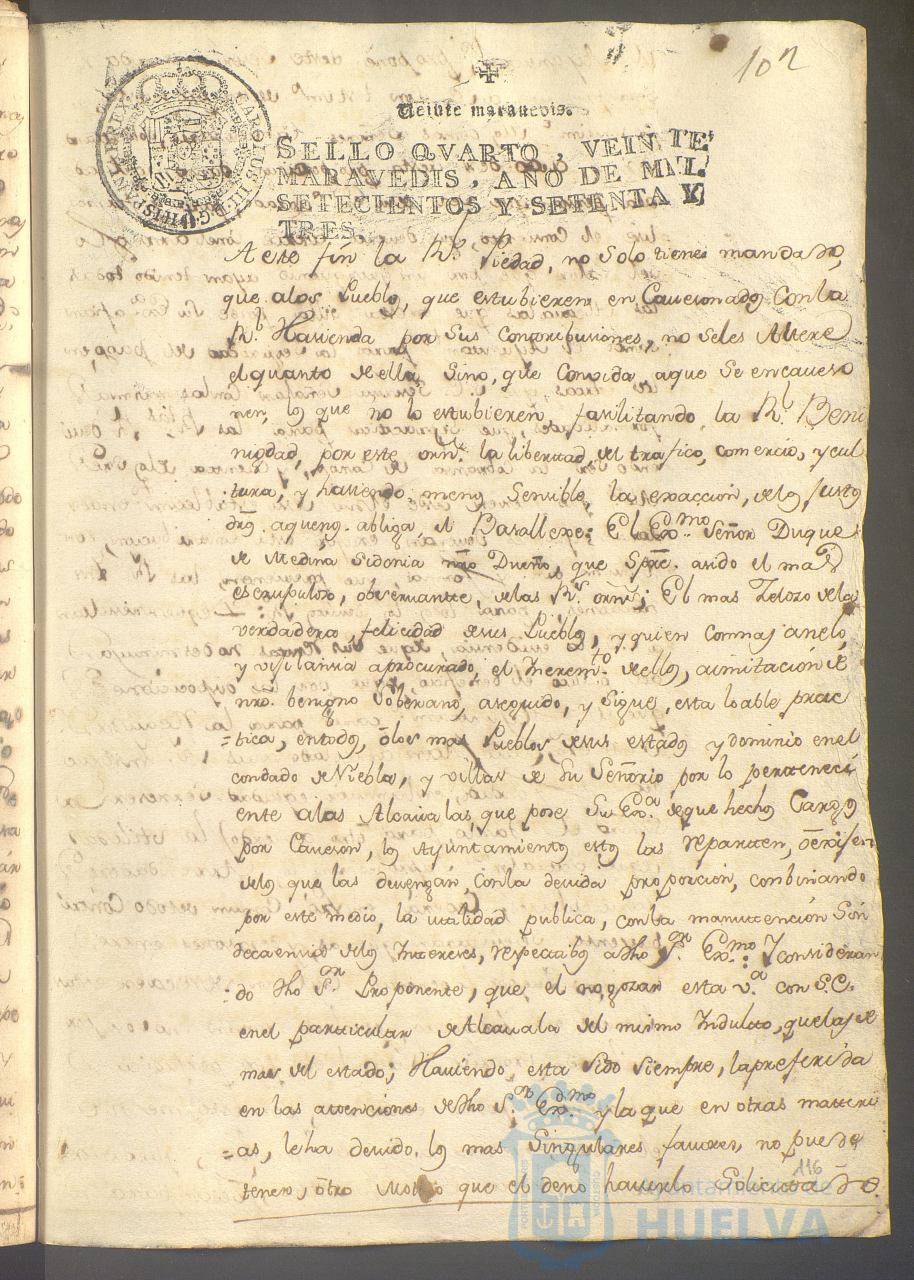 102
Veinte maravedis.
SELLO QVARTO, VEINTE
MARAVEDIS, AÑO DE MIL
SETECIENTOS Y SETENTA Y
TRES.
CAROLUS III D.G. HISPANIAR REX
A este fin la Rl. Piedad, no solo tiene mandado,
que alos Pueblos, que estubieren en Cauesonados Con la
Rl. Hasienda por sus Conttribusiones, no seles Altere
el quanto de ella, Sino, que Convida, aque Se encaueso
nen, los que no lo estubieren, fasilitando la Rl. Beni
nigdad, por este orn. la libertad, del trafico, comercio, y cul
tura, y hasiendo menos Sensible la exaccion, delos justos
dros. aquenos abliga el Basallexe: El Exmo. Señor Duque
de Medina Sidonia nro Dueño, que Spre. asido el mas
escrupuloso, observante, delas Rs. orns; El mas Zeloso dela
verdadera, felicidad desus Pueblos, y quien Conmas anelo,
y vijilansia aprocurado, el Yncremto. de ellos, aimitacion de
nro. benigno Soberano, aseguido, y Sigue, esta loable prac
=ttica, entodos, ólos mas Pueblos desus estados y dominio enel
condado de Niebla, y villas de Su Señorio por lo perteneci
ente alas Alcavalas, que pose Su Exa. deque hechos Cargos
por Caueson, los Ayuntamientos estos las reparten,
delos que las devengan, conla devida proporcion, combinando
por este medio, la utilidad publica, conla manutencion Sin
decaensia delos Yntereses, respectibos adho Sr. Exmo: Yconsideran
do dho Sr. Proponente, que el no gozar esta va. con S.E.
enel particular de Alcauala del mismo Yndulto, quelas de
mas del estado; Haviendo, esta sido siempre, la preferida
en las attenciones de dho Sr. Exmo. y la que en otras matteri
=as, le ha devido, los mas Singulares favores, no puede
tener, otro Motivo que el deno haverlo Solicitado.
116
Ayuntamiento de
HUELVA